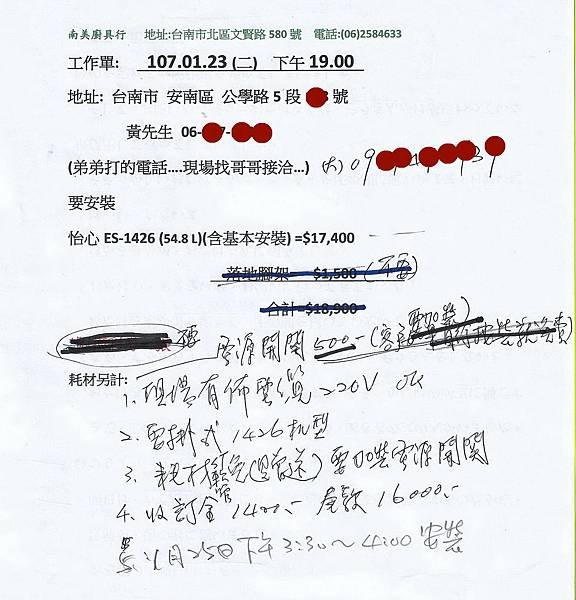 南美廚具行 地址:台南市北區文賢路 580 號 電話:(06)2584633
工作單: 107.01.23 (二) 下午 19.00
地址: 台南市 安南區 公學路 5 段 號
黃先生 06-
(弟弟打的電話....現場找哥哥接洽...) 09
要安裝
怡心 ES-1426 (54.8 L)(含基本安裝) =$17,400
落地腳架= $1,500 (不要)
合計=$18,900
電源開關 500.-
耗材另計:
1. 現場有佈電纜 220V OK
2. 要掛式 1426 机型
3. 耗材 要加裝電源開關
4. 收訂金 1400.- 尾款 16000.-
1月25日下午3:30~4:00 安裝